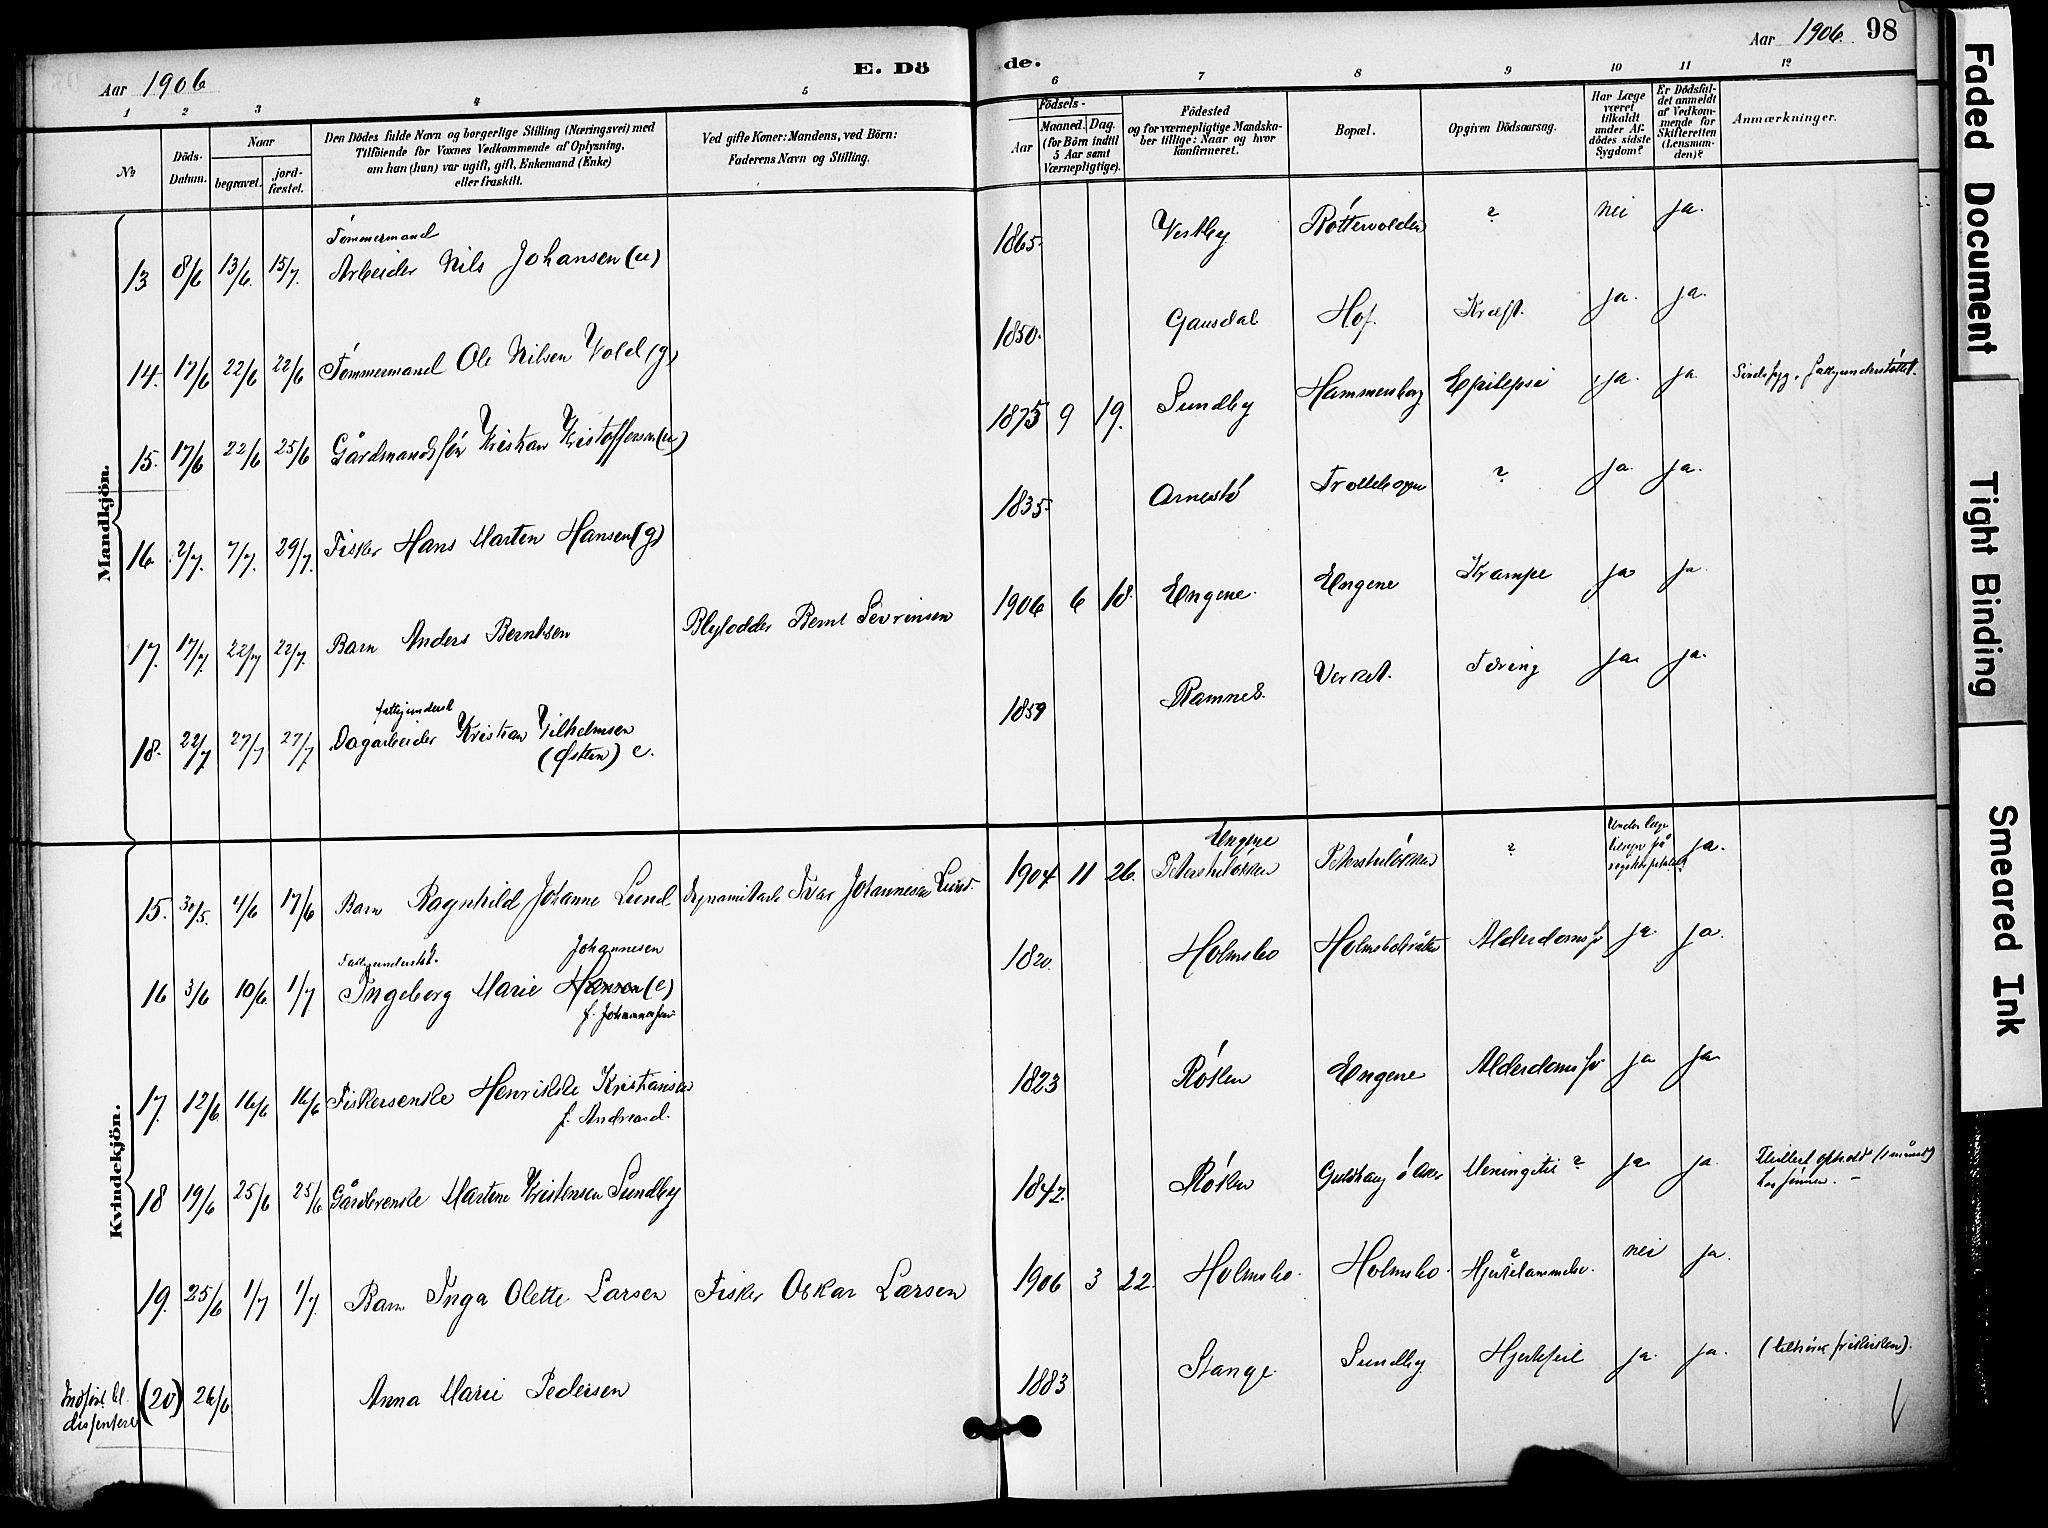 Aar 1906
E. Dö
de.
Aar 1906. 98
1 2 3 4 5 6 7 8 9 10 11 12
No
Döds-Datum.
Naar
begravet.
jord-fæstet.
Den Dödes fulde Navn og borgerlige Stilling (Næringsvei) med
Tilföiende for Voxnes Vedkommende af Oplysning,
om han (hun) var ugift, gift, Enkemand (Enke)
eller fraskilt.
Ved gifte Koner: Mandens, ved Börn:
Faderens Navn og Stilling.
Födsels-
Aar
Maaned. Dag.
(for Börn indtil
5 Aar samt
Værnepligtige).
Födested
og for værnepligtige Mandska-
ber tillige: Naar og hvor
konfirmeret.
Bopæl.
Opgiven Dödsaarsag.
Har Læge
været
tilkaldt
under Af-
dödes sidste
Sygdom?
Er Dödsfal-
det anmeldt
af Vedkom-
mende for
Skifteretten
(Lensman-
den)?
Anmærkninger.
Mandkjön.
Tømmermand
13 8/6 13/6. 15/7. Arbeider Nils Johansen (u) 1865. Vestby Røttevolden ? nei ja.
14. 17/6 22/6 22/6 Tømmermand Ole Nilsen Vold (g) 1850. Gausdal Hof. Kræft. ja. ja.
15. 17/6 22/6 25/6 Gårdmandssøn Kristian Kristoffersen (u) 1875 9 19. Sundby Hammersborg Epilepsi ja. ja Sindssyg. Fattigunderstøttet.
16 2/7. 7/7. 29/7. Fisker Hans Marten Hansen (g) 1835 ? ja. ja.
17. 17/7 22/7 22/7. Barn Anders Berntsen Blylodder Bernt Sevrinsen 1906 6 18. Engene. Engene Krampe ja ja.
fattigunderst
18. 22/7 27/7 27/7 Dagarbeider Kristian Vilhelmsen 1859 Ramnes. Verket. Tæring ja. ja.
(Østern) e.
Kvindekjön.
15. 30/5. 4/6 17/6 Barn Ragnhild Johanne Lund Dynamitarb. Ivar Johannesen Lund. 1904 11 26. Engene Petersheløkken Petersheløkken ? ja.
Fattigunderstøt. Johannesen
16 3/6 10/6. 1/7 Ingeborg Marie Hansen (e) 1820. Holmsbo Alderdomssv ja ja.
f. Johannessen
17. 12/6. 16/6 16/6 Fiskerenke Henrikke Kristiansen 1823 Røken Engene Alderdomssv ja ja.
f. Andreasd.
18 19/6 25/6 25/6 Gårdbrenke Martine Kristensen Sundby 1842. Røken Meningitis ? ja. ja.
19. 25/6 1/7 1/7. Barn Inga Olette Larsen Fisker Oskar Larsen 1906 3 22. Holmsbo. Holmsbo. Hjertelammelse. nei ja.
Indført bl.
dissentere (20) 26/6 Anna Marie Pedersen 1883 Stange Sundby Hjertefeil ja. ja. (tilhører frikirken).
Faded Document
Tight Binding
Smeared Ink